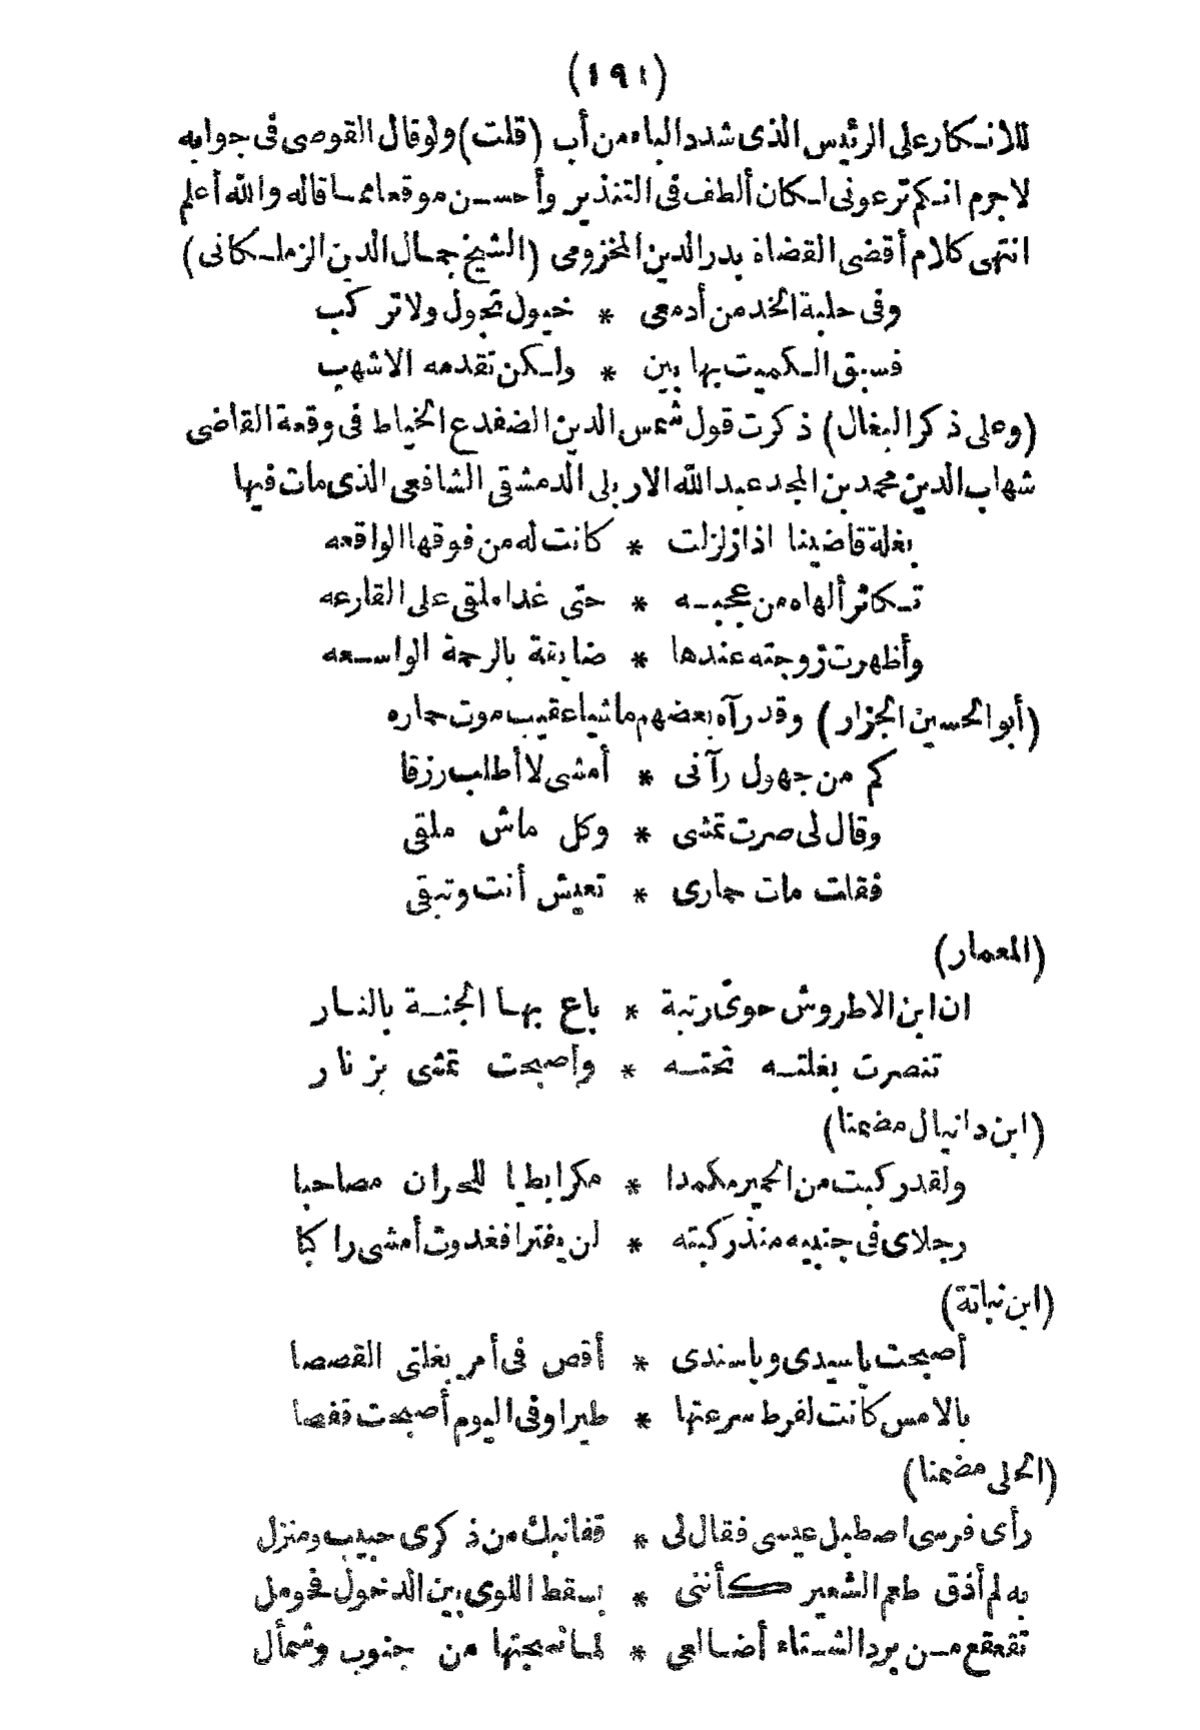 (١٩١)
للانكار على الرئيس الذى شدد الباء من أب (قلت) ولو قال القوصى فى جوابه
لا جرم انكم ترعونى لكان ألطف فى التنذير وأحسن موقعا مما قاله والله أعلم
انتهى كلام أقضى القضاة بدر الدين المخزومى (الشيخ جمال الدين الزملكانى)
وفى حلبة الخد من أدمعى * خيول تجول ولا تركب
فسبق الكميت بها بين * ولكن تقدمه الاشهب
(وعلى ذكر البغال) ذكرت قول شمس الدين الضفدع الخياط فى وقعة القاضى
شهاب الدين محمد بن المجد عبد الله الاربلى الدمشقى الشافعى الذى مات فيها
بغلة قاضينا اذا زلزلت * كانت له من فوقها الواقعه
تكاثر ألهاه من عجبه * حتى غدا ملقى على القارعه
وأظهرت زوجته عندها * ضايقة بالرحمة الواسعه
(أبو الحسين الجزار) وقد رآه بعضهم ماشيا عقيب موت حماره
كم من جهول رآنى * أمشى لا أطلب رزقا
وقال لى صرت تمشى * وكل ماش ملقى
فقلت مات حمارى * تعيش أنت وتبقى
(المعمار)
ان ابن الاطروش حوى رتبة * باع بها الجنة بالنار
تنصرت بغلته تحته * وأصبحت تمشى بزنار
(ابن دانيال مضمنا)
ولقد ركبت من الحمير مكمدا * مكرا بطيا للحران مصاحبا
رجلاى فى جنبيه منذ ركبته * لن يفترا فغدوت أمشى راكبا
(ابن نباتة)
أصبحت يا سيدى ويا سندى * أقص فى أمر بغلتى القصصا
بالامس كانت لفرط سرعتها * طيرا وفى اليوم أصبحت قفصا
(الحلى مضمنا)
رأى فرسى اصطبل عيسى فقال لى * قفا نبك من ذكرى حبيب ومنزل
به لم أذق طعم الشعير كأننى * بسقط اللوى بين الدخول فحومل
تقعقع من برد الشتاء أضالعى * لما نسجتها من جنوب وشمأل